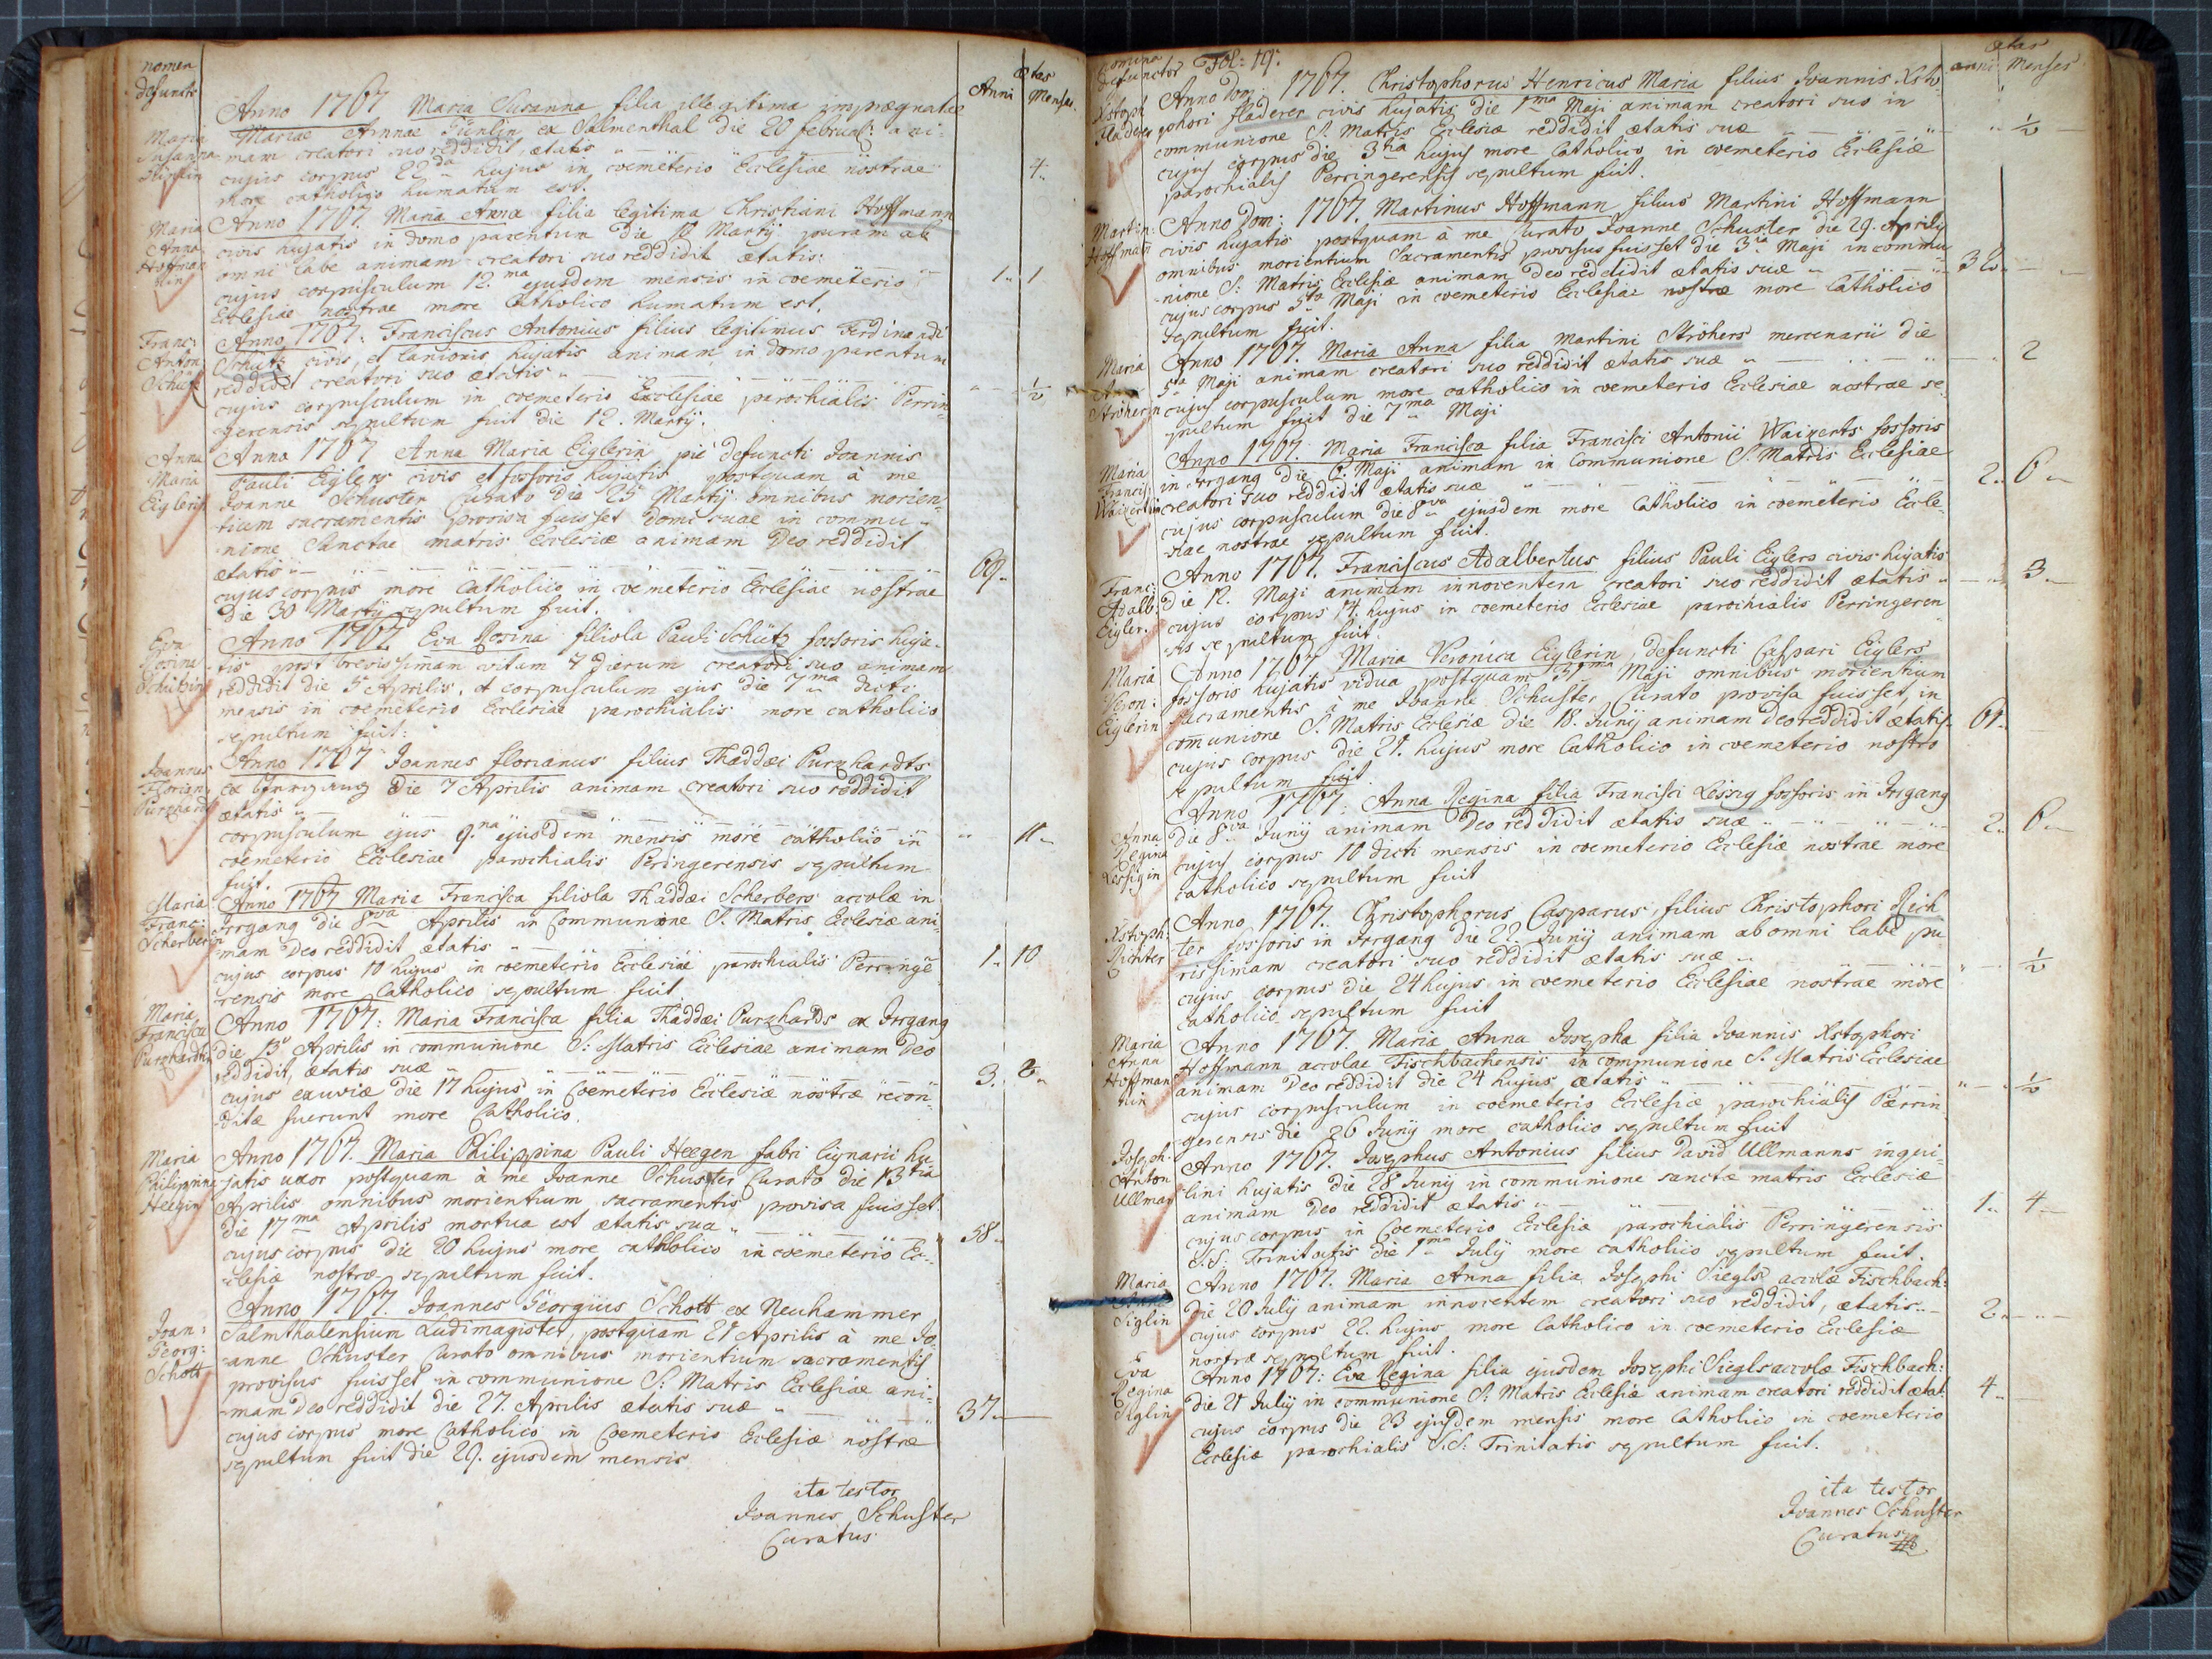 nomen
defuncti
ætas
Anni Menses
Anno 1767 Maria Susanna filia illegitima imprægnatæ
Maria
Susanna
Mariae Annae ex Salmenthal die 20 februar: ani-
mam creatori suo reddidit, ætatis
cujus corpus 22da hujus in coemeterio Ecclesiae nostrae 4.
more catholico humatum est.
Maria
Anna
Hoffman
nin
Anno 1767. Maria Anna filia legitima Christiani Hoffmann
civis hujatis in domo parentum die 10 Martij puram ab
omni labe animam creatori suo reddidit ætatis:
cujus corpusculum 12.ma ejusdem mensis in coemeterio 1. 1
Ecclesiae nostrae more Catholico humatum est.
Franc:
Anton
Schütz
Anno 1767. Franciscus Antonius filius legitimus Ferdinandi
Schütz civis, et lanionis hujatis animam in domo parentum
reddidit creatori suo ætatis
cujus corpusculum in coemeterio Ecclesiae parochialis Perrin- ½
gerensis sepultum fuit die 12. Martij.
Anna
Maria
Eiglerin
Anno 1767 Anna Maria Eiglerin pie defuncti Joannis
Pauli Eiglers civis et fossoris hujatis postquam à me
Joanne Schuster Curato die 25 Martij omnibus morien-
tium sacramentis provisa fuisset domi suae in commu-
nione Sanctae matris Ecclesiæ animam Deo reddidit
ætatis
cujus corpus more Catholico in coemeterio Ecclesiae nostrae 69.
die 30 Martij sepultum fuit.
Eva
Rosina
Schützin
Anno 1767 Eva Rosina filiola Pauli Schütz fossoris huja-
tis post brevissimam vitam 7 dierum creatori suo animam
reddidit die 5 Aprilis, et corpusculum ejus die 7ma dicti
mensis in coemeterio Ecclesiae parochialis more catholico
sepultum fuit:
Joannes
Florian
Purzhard
Anno 1767 Joannes florianus filius Thaddæi Purzhardts
ex Irrgang die 7 Aprilis animam creatori suo reddidit
ætatis
corpusculum ejus 9.na ejusdem mensis more catholico in 11.
coemeterio Ecclesiae parochialis Peringerensis sepultum
fuit.
Maria
Franc:
Scherberin
Anno 1767 Maria Francisca filiola Thaddæi Scherbers accolæ in
Irrgang die 8va Aprilis in Communione S. Matris Eclesiæ ani-
mam Deo reddidit ætatis
cujus corpus 10 hujus in coemeterio Ecclesiae parochialis Perringe- 1. 10
rensis more Catholico sepultum fuit
Maria
Francisca
Purzhardtin
Anno 1767: Maria Francisca filia Thaddæi Purzhards ex Irrgang
die 13 Aprilis in communione S: Matris Ecclesiae animam Deo
reddidit, ætatis suæ
cujus exuviæ die 17 hujus in Coemeterio Ecclesiæ nostræ recon- 3. 2.
ditæ fuerunt more Catholico.
Maria
Philippina
Heegin
Anno 1767. Maria Philippina Pauli Heegen fabri lignarii hu-
jatis uxor postquam à me Joanne Schuster Curato die 13tia
Aprilis omnibus morientium sacramentis provisa fuisset
die 17ma Aprilis mortua est ætatis sua
cujus corpus die 20 hujus more catholico in coemeterio Ec- 58.
clesiæ nostræ sepultum fuit.
Joan:
Georg:
Schott
Anno 1767. Joannes Georgius Schott ex Neuhammer
Salmthalensium Ludimagister, postquam 21 Aprilis à me Jo-
anne Schuster Curato omnibus morientium sacramentis
provisus fuisset in communione S: Matris Ecclesiae ani-
mam Deo reddidit die 27. Aprilis ætatis suæ
cujus corpus more Catholico in Coemeterio Eclesiæ nostræ 37.
sepultum fuit die 29. ejusdem mensis
ita testor
Joannes Schuster
Curatus
nomina
defunctor
Fol: 19.
ætas
anni Menses
Xstoph
fladerer
Anno Dom: 1767. Christophorus Henricus Maria filius Joannis Xsto-
phori fladerer civis hujatis die 1ma Maji animam creatori suo in
communione S. Matris Eclesiæ reddidit ætatis suæ ½
cujus corpus die 3tia hujus more Catholico in coemeterio Eclesiæ
parochialis Perringerensis sepultum fuit.
Martin:
Hoffmañ
Anno Dom: 1767. Martinus Hoffmann filius Martini Hoffmann
civis hujatis postquam à me Curato Joanne Schuster die 29. Aprilis
omnibus morientium Sacramentis provisus fuisset die 3tia Maji in commu-
nione S: Matris Eclesiæ animam Deo reddidit ætatis suæ 32.
cujus corpus 5ta Maji in coemeterio Ecclesiae nostræ more Catholico
sepultum fuit.
Maria
Ströherin
Anno 1767. Maria Anna filia Martini Ströhers mercenarii die
5ta Maji animam creatori suo reddidit ætatis suæ 2
cujus corpusculum more catholico in coemeterio Ecclesiae nostrae se-
pultum fuit die 7ma Maji
Maria
Francis:
Waizertin
Anno 1767. Maria Francisca filia Francisci Antonii Waizerts fossoris
in Irrgang die 6 Maji animam in Communione S. Matris Ecclesiae
creatori suo reddidit ætatis suæ 2. 6.
cujus corpusculum die 8va ejusdem more Catholico in coemeterio Eccle-
siae nostrae sepultum fuit.
Franc:
Adalb:
Eigler.
Anno 1767. Franciscus Adalbertus filius Pauli Eiglers civis hujatis
die 12. Maji animam innocentem creatori suo reddidit ætatis 3.
cujus corpus 14. hujus in coemeterio Ecclesiae parochialis Perringeren-
sis sepultum fuit.
Maria
Veron:
Eiglerin
Anno 1767 Maria Veronica Eiglerin, defuncti Caspari Eiglers
fossoris hujatis vidua postquam 31ma Maji omnibus morientium
sacramentis à me Joanne Schuster Curato provisa fuisset, in
communione S. Matris Eclesiæ die 18. Junij animam Deo reddidit ætatis 61.
cujus corpus die 21. hujus more Catholico in coemeterio nostro
sepultum fuit.
Anna
Regina
Lessigin
Anno 1767: Anna Regina filia Francisci Lessig fossoris in Irrgang
die 8va Junij animam Deo reddidit ætatis suæ 2. 6.
cujus corpus 10 dicti mensis in coemeterio Ecclesiæ nostrae more
catholico sepultum fuit
Xstoph:
Richter
Anno 1767. Christophorus Casparus filius Christophori Rich
ter fossoris in Irrgang die 22. Junij animam ab omni labe pu-
rissimam creatori suo reddidit ætatis suæ ½
cujus corpus die 24 hujus in coemeterio Ecclesiae nostrae more
catholico sepultum fuit
Maria
Anna
Hoffman
nin
Anno 1767. Maria Anna Josepha filia Joannis Xstophori
Hoffmann accolae Fischbachensis in communione S. Matris Ecclesiae
animam Deo reddidit die 24 hujus ætatis ½
cujus corpusculum in coemeterio Eclesiæ parochialis Perrin-
gerensis die 26 Junij more catholico sepultum fuit
Joseph:
Anton
Ullman
Anno 1767. Josephus Antonius filius David Ullmanns inqui-
lini hujatis die 28 Junij in communione sanctæ matris Ecclesiæ
animam Deo reddidit ætatis 1. 4
cujus corpus in Coemeterio Eclesiæ parochialis Perringerensis
S.S: Trinitatis die 1ma Julij more catholico sepultum fuit.
Maria
Siglin
Anno 1767. Maria Anna filia Josephi Siegls accolæ Fischbach:
die 20 Julij animam innocentem creatori suo reddidit, ætatis 2.
cujus corpus 22. hujus more Catholico in coemeterio Ecclesiæ
nostræ sepultum fuit.
Eva
Regina
Siglin
Anno 1767: Eva Regina filia ejusdem Josephi Siegls accolæ Fischbach:
die 21 Julij in communione S: Matris Eclesiæ animam creatori reddidit ætat: 4.
cujus corpus die 23 ejusdem mensis more Catholico in coemeterio
Ecclesiæ parochialis S.S: Trinitatis sepultum fuit.
ita testor
Joannes Schuster
Curatus